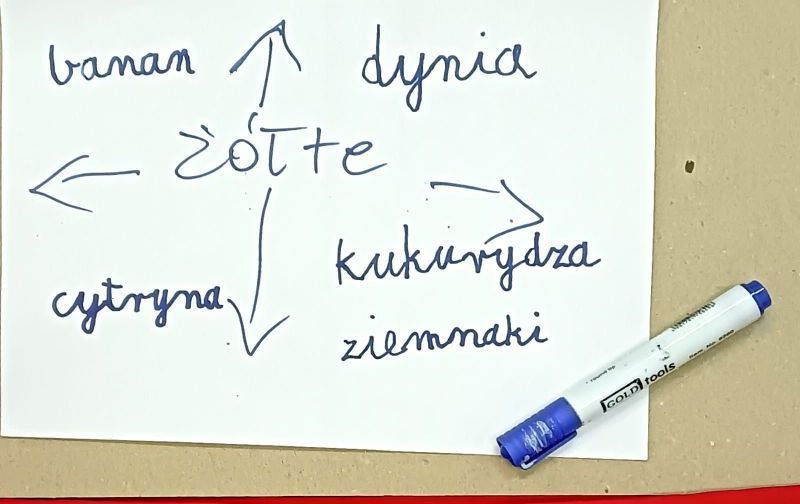 banan
dynia
żółte
kukurydza
cytryna
ziemnaki
GOLD tools